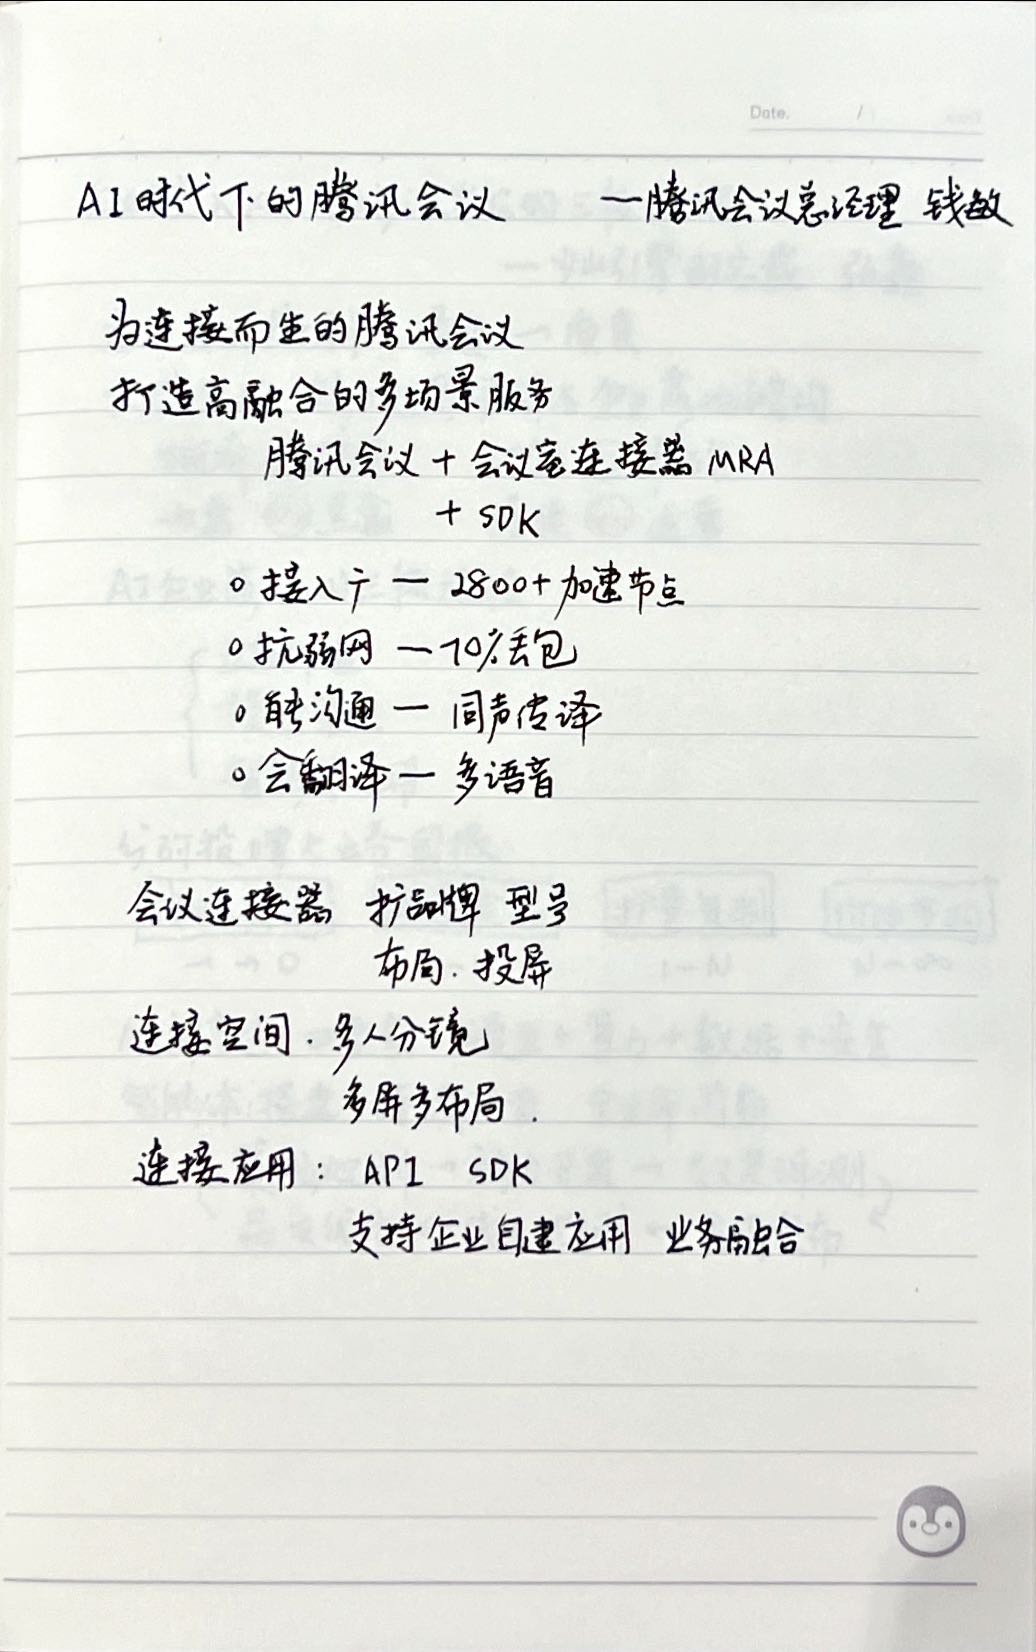 Date. /
AI时代下的腾讯会议 —腾讯会议总经理 钱敏
为连接而生的腾讯会议
打造高融合的多场景服务
腾讯会议 + 会议室连接器 MRA
+ SDK
o 接入广 — 2800+ 加速节点
o 抗弱网 — 70%丢包
o 能沟通 — 同声传译
o 会翻译 — 多语音
会议连接器 扩品牌 型号
布局. 投屏
连接空间. 多人分镜
多屏多布局.
连接应用: API SDK
支持企业自建应用 业务融合